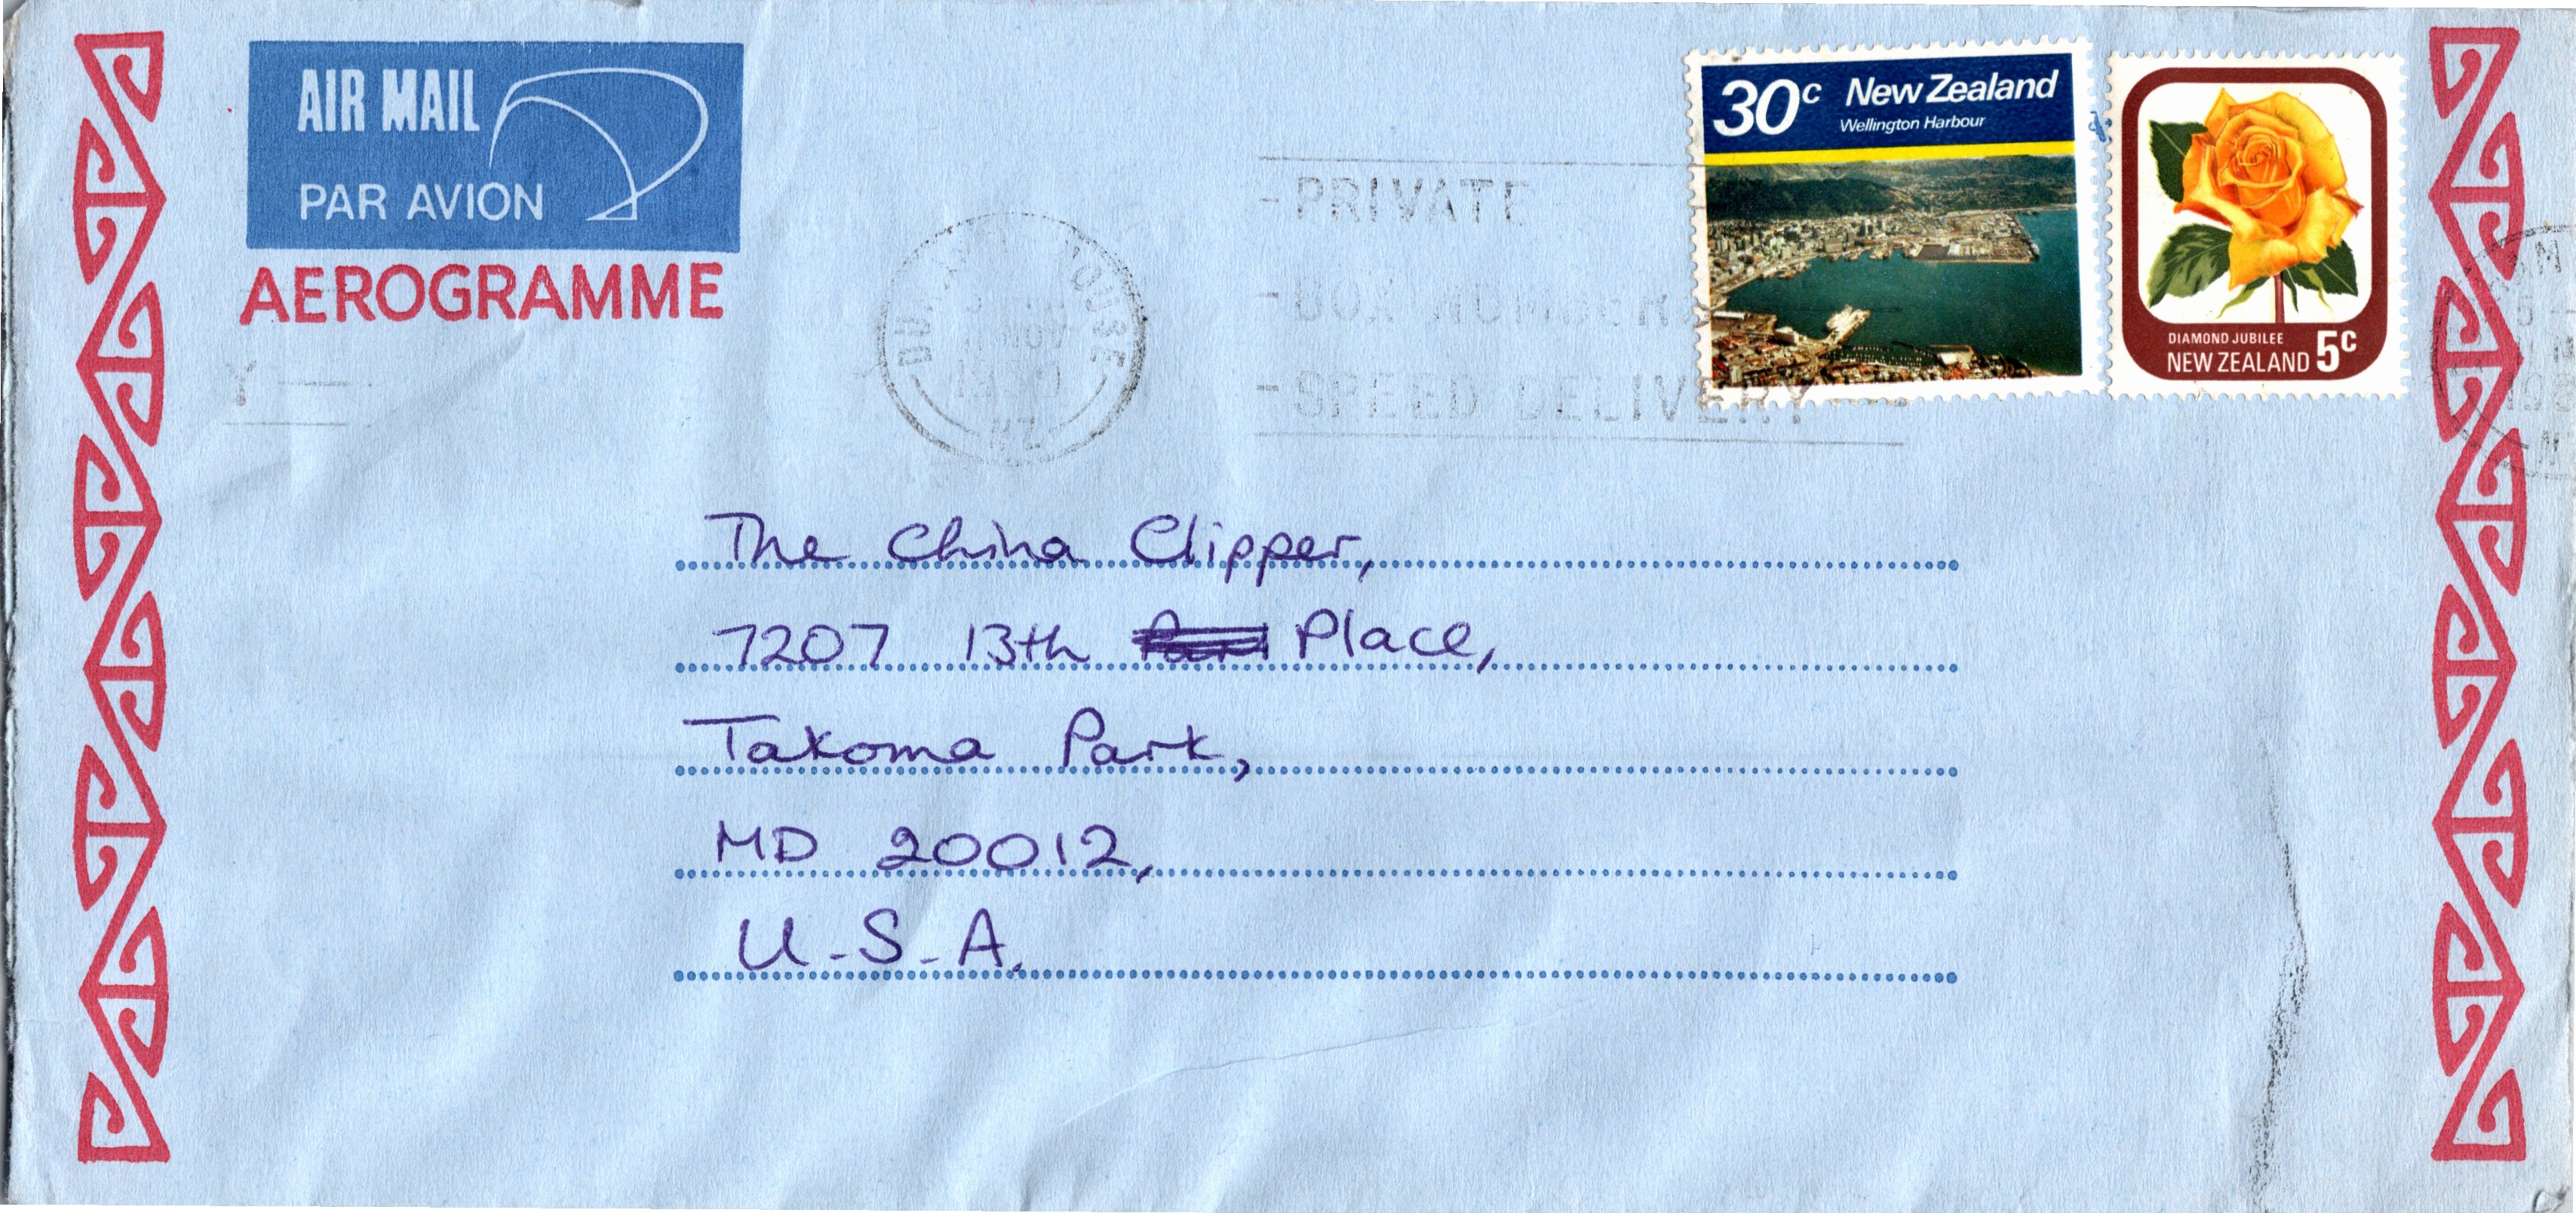 AIR MAIL
PAR AVION
AEROGRAMME
30c New Zealand
Wellington Harbour
DIAMOND JUBILEE
NEW ZEALAND 5c
-PRIVATE
-BOX NUMBERS
-SPEED DELIVERY
NOV
NZ
Y
The China Clipper,
7207 13th Place,
Takoma Park,
MD 20012,
U.S.A.